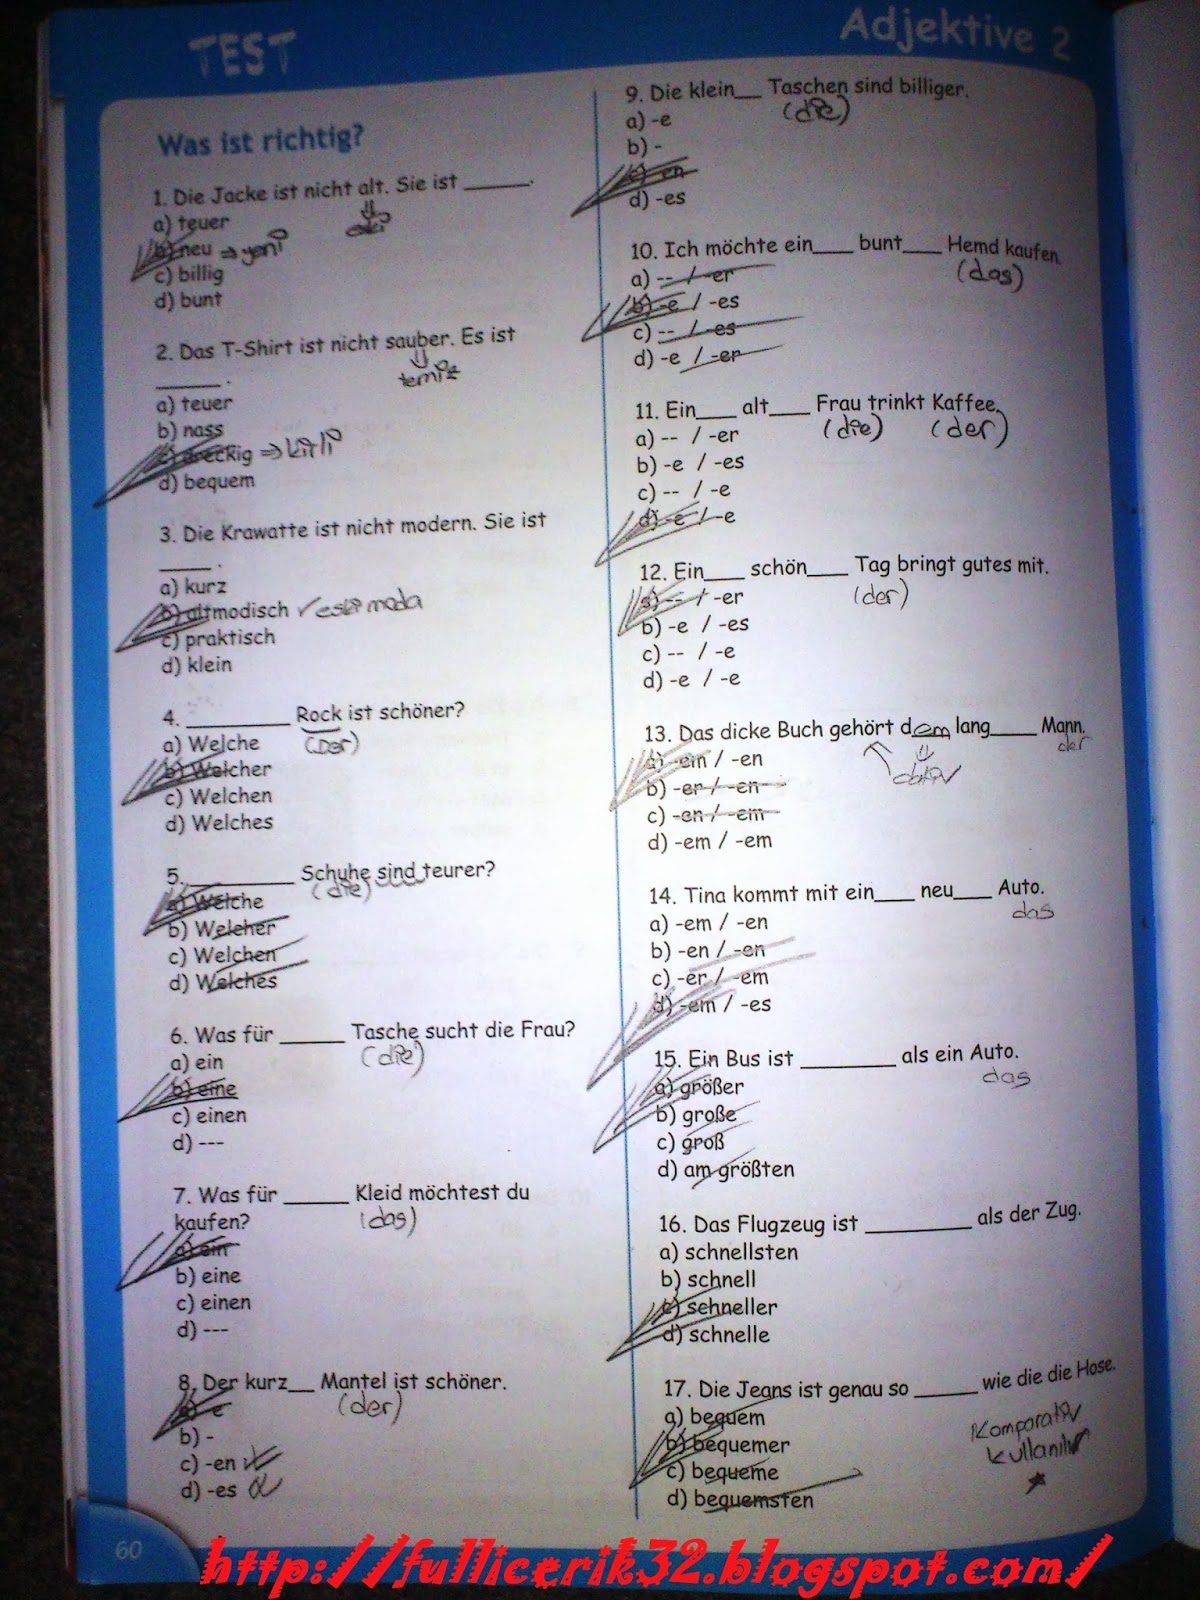 TEST
Adjektive 2
Was ist richtig?
1. Die Jacke ist nicht alt. Sie ist ______.
eski
a) teuer
b) neu ⇒ yeni
c) billig
d) bunt
2. Das T-Shirt ist nicht sauber. Es ist
______ .
temiz
a) teuer
b) nass
c) dreckig ⇒ kirli
d) bequem
3. Die Krawatte ist nicht modern. Sie ist
_____ .
a) kurz
b) altmodisch ✓ eski moda
c) praktisch
d) klein
4. __________ Rock ist schöner?
(Der)
a) Welche
b) Welcher
c) Welchen
d) Welches
5. __________ Schuhe sind teurer?
(die)
a) Welche
b) Welcher
c) Welchen
d) Welches
6. Was für ______ Tasche sucht die Frau?
(die)
a) ein
b) eine
c) einen
d) ---
7. Was für ______ Kleid möchtest du
kaufen?
(das)
a) ein
b) eine
c) einen
d) ---
8. Der kurz__ Mantel ist schöner.
(der)
a) -e
b) -
c) -en
d) -es
9. Die klein__ Taschen sind billiger.
(die)
a) -e
b) -
c) -en
d) -es
10. Ich möchte ein___ bunt___ Hemd kaufen.
(das)
a) -- / -er
b) -e / -es
c) -- / -es
d) -e / -er
11. Ein___ alt___ Frau trinkt Kaffee.
(die) (der)
a) -- / -er
b) -e / -es
c) -- / -e
d) -e / -e
12. Ein___ schön___ Tag bringt gutes mit.
(der)
a) -- / -er
b) -e / -es
c) -- / -e
d) -e / -e
13. Das dicke Buch gehört dem lang____ Mann.
der
dativ
a) -em / -en
b) -er / -en
c) -en / -em
d) -em / -em
14. Tina kommt mit ein___ neu___ Auto.
das
a) -em / -en
b) -en / -en
c) -er / -em
d) -em / -es
15. Ein Bus ist ________ als ein Auto.
das
a) größer
b) große
c) groß
d) am größten
16. Das Flugzeug ist _________ als der Zug.
a) schnellsten
b) schnell
c) schneller
d) schnelle
17. Die Jeans ist genau so _____ wie die die Hose.
a) bequem
b) bequemer
c) bequeme
d) bequemsten
Komparativ
kullanılır
60
http://fullicerik32.blogspot.com/